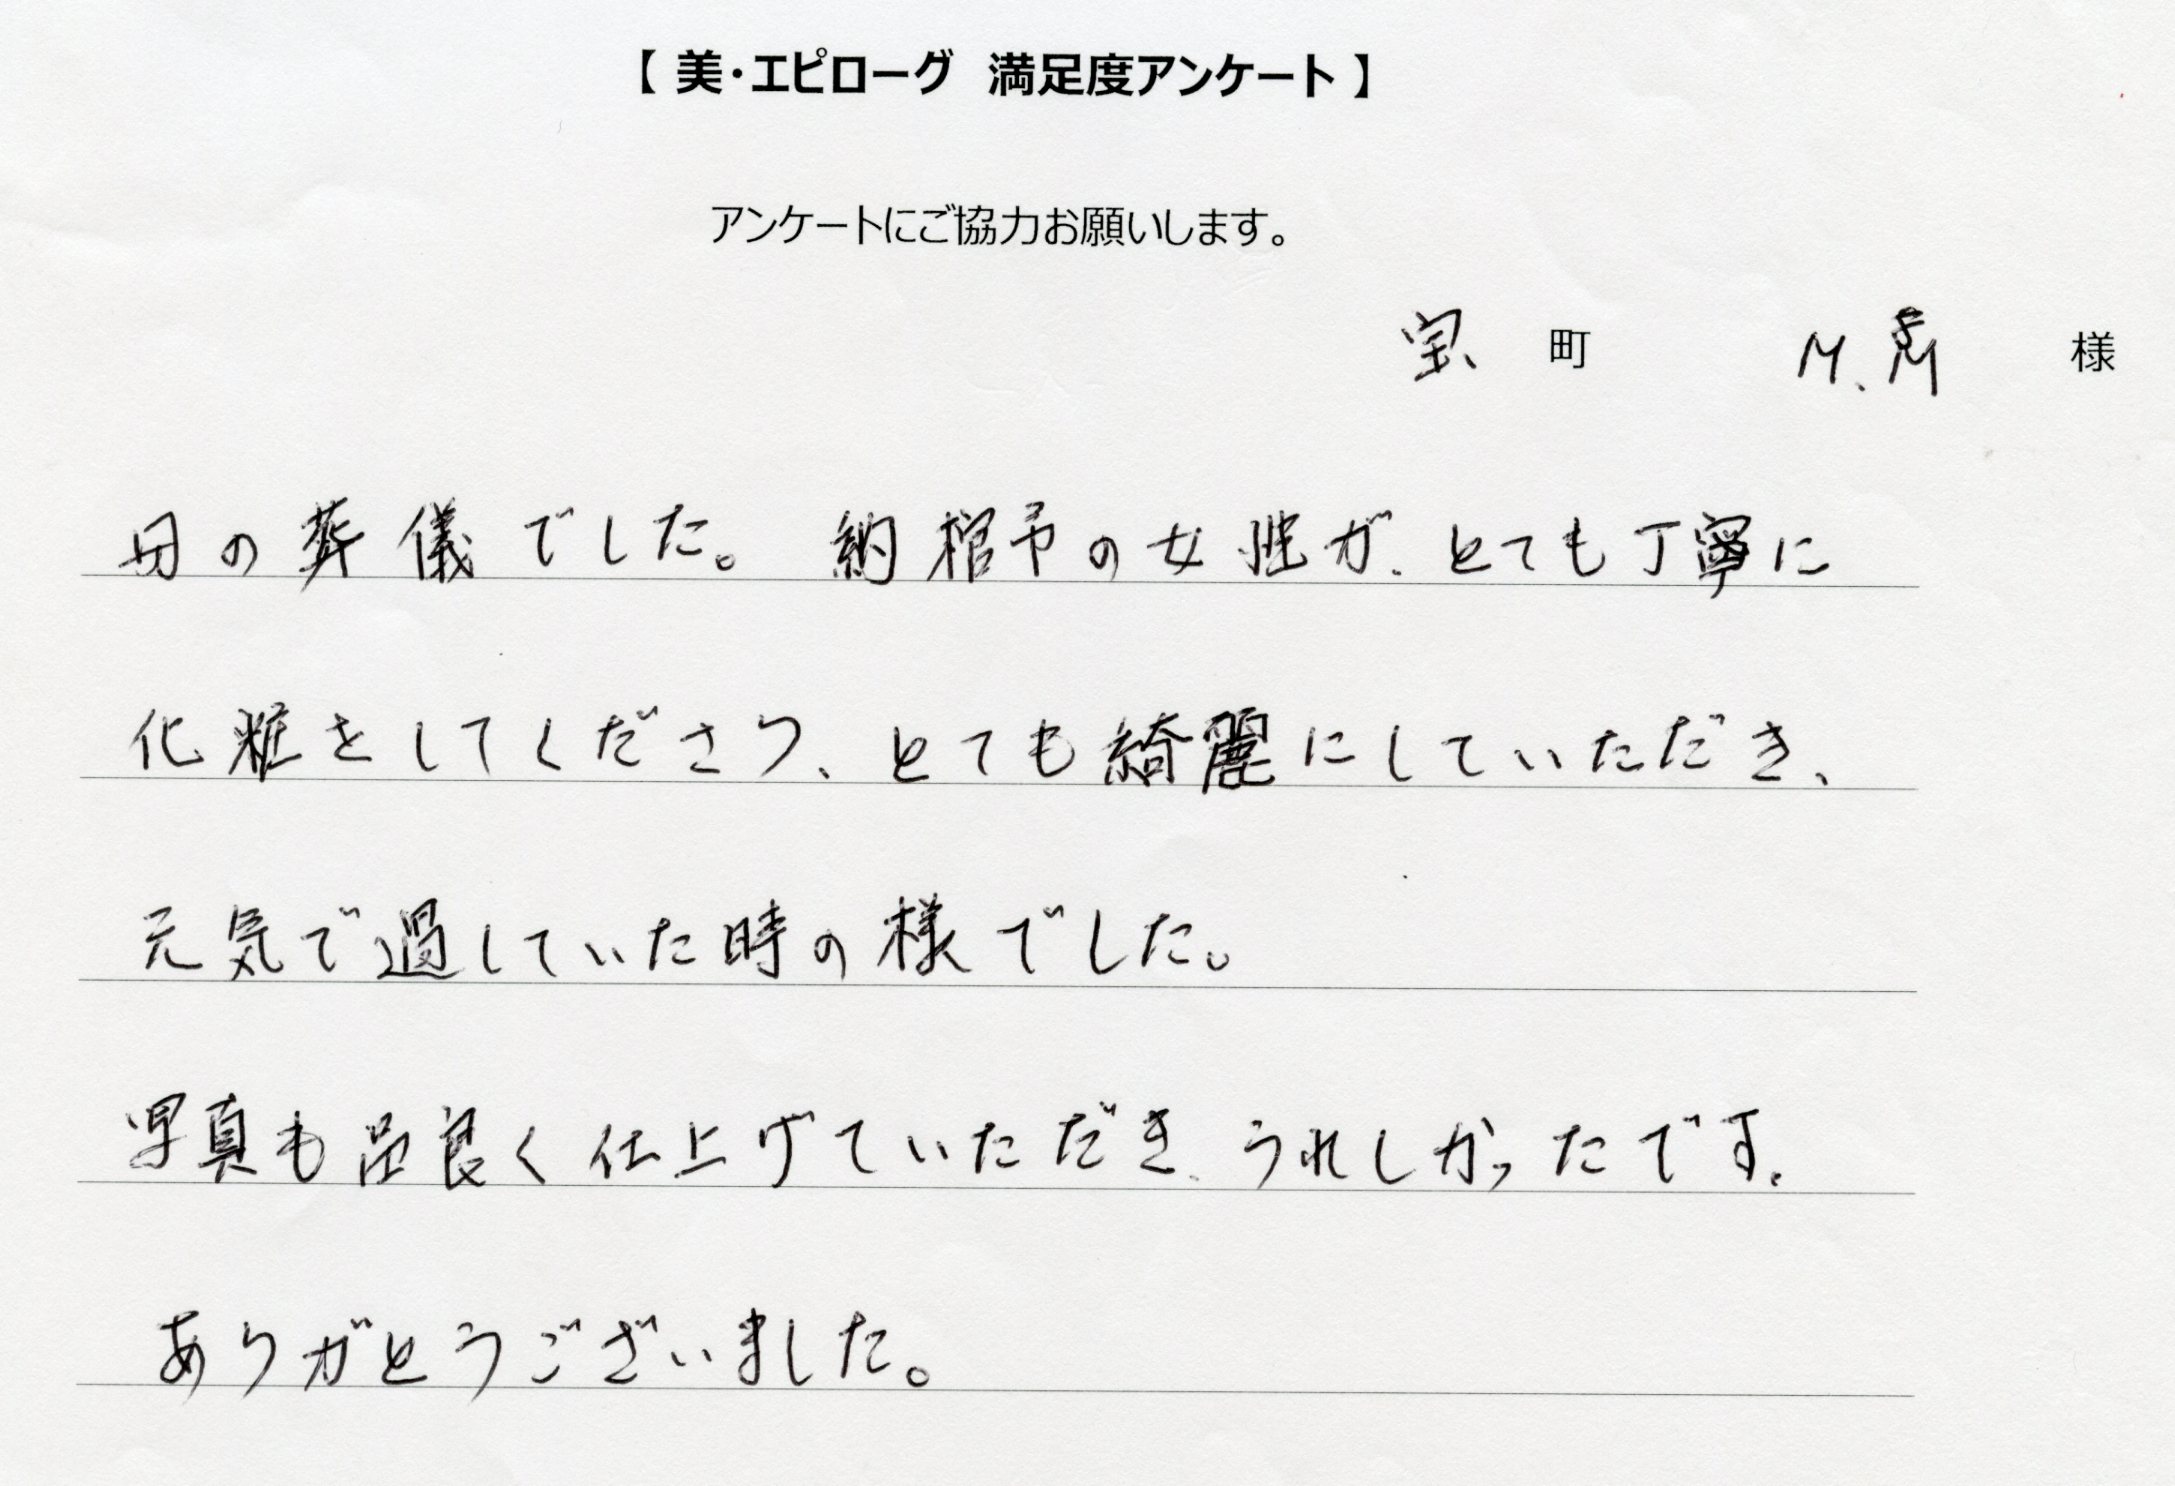 【 美・エピローグ 満足度アンケート 】
アンケートにご協力お願いします。
宝 町 M. M 様
母の葬儀でした。 納棺予の女性が、とても丁寧に
化粧をしてくださり、とても綺麗にしていただき、
元気で過していた時の様でした。
写真も品良く仕上げていただき、うれしかったです。
ありがとうございました。